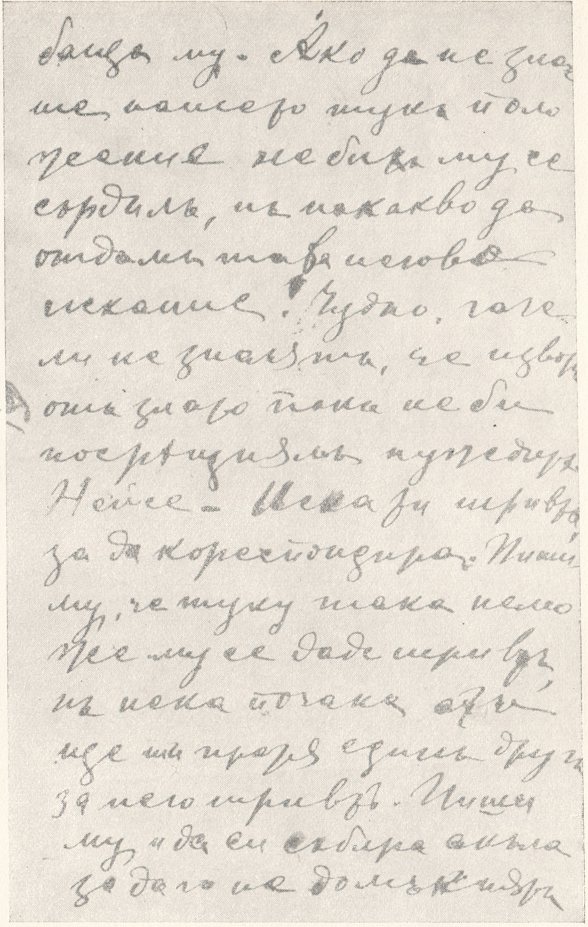 баща му. Ако да не зная
ше нашето тука поло
жение не бихъ му се
сърдилъ, нъ на какво да
отдамъ това негово
искание! Чудно, гаче
ли не знаятъ, че извор
отъ злато пакъ не би
посрѣщналъ нуждитѣ
Нейсе – Искалъ ти шривтъ
за да кореспондира. Пиши
му, че туку така немо
же му се даде шривтъ,
нъ нека почака
ще ти пратя единъ другъ
за него шривтъ. Пиши
му и да си събира акъла
за да го не